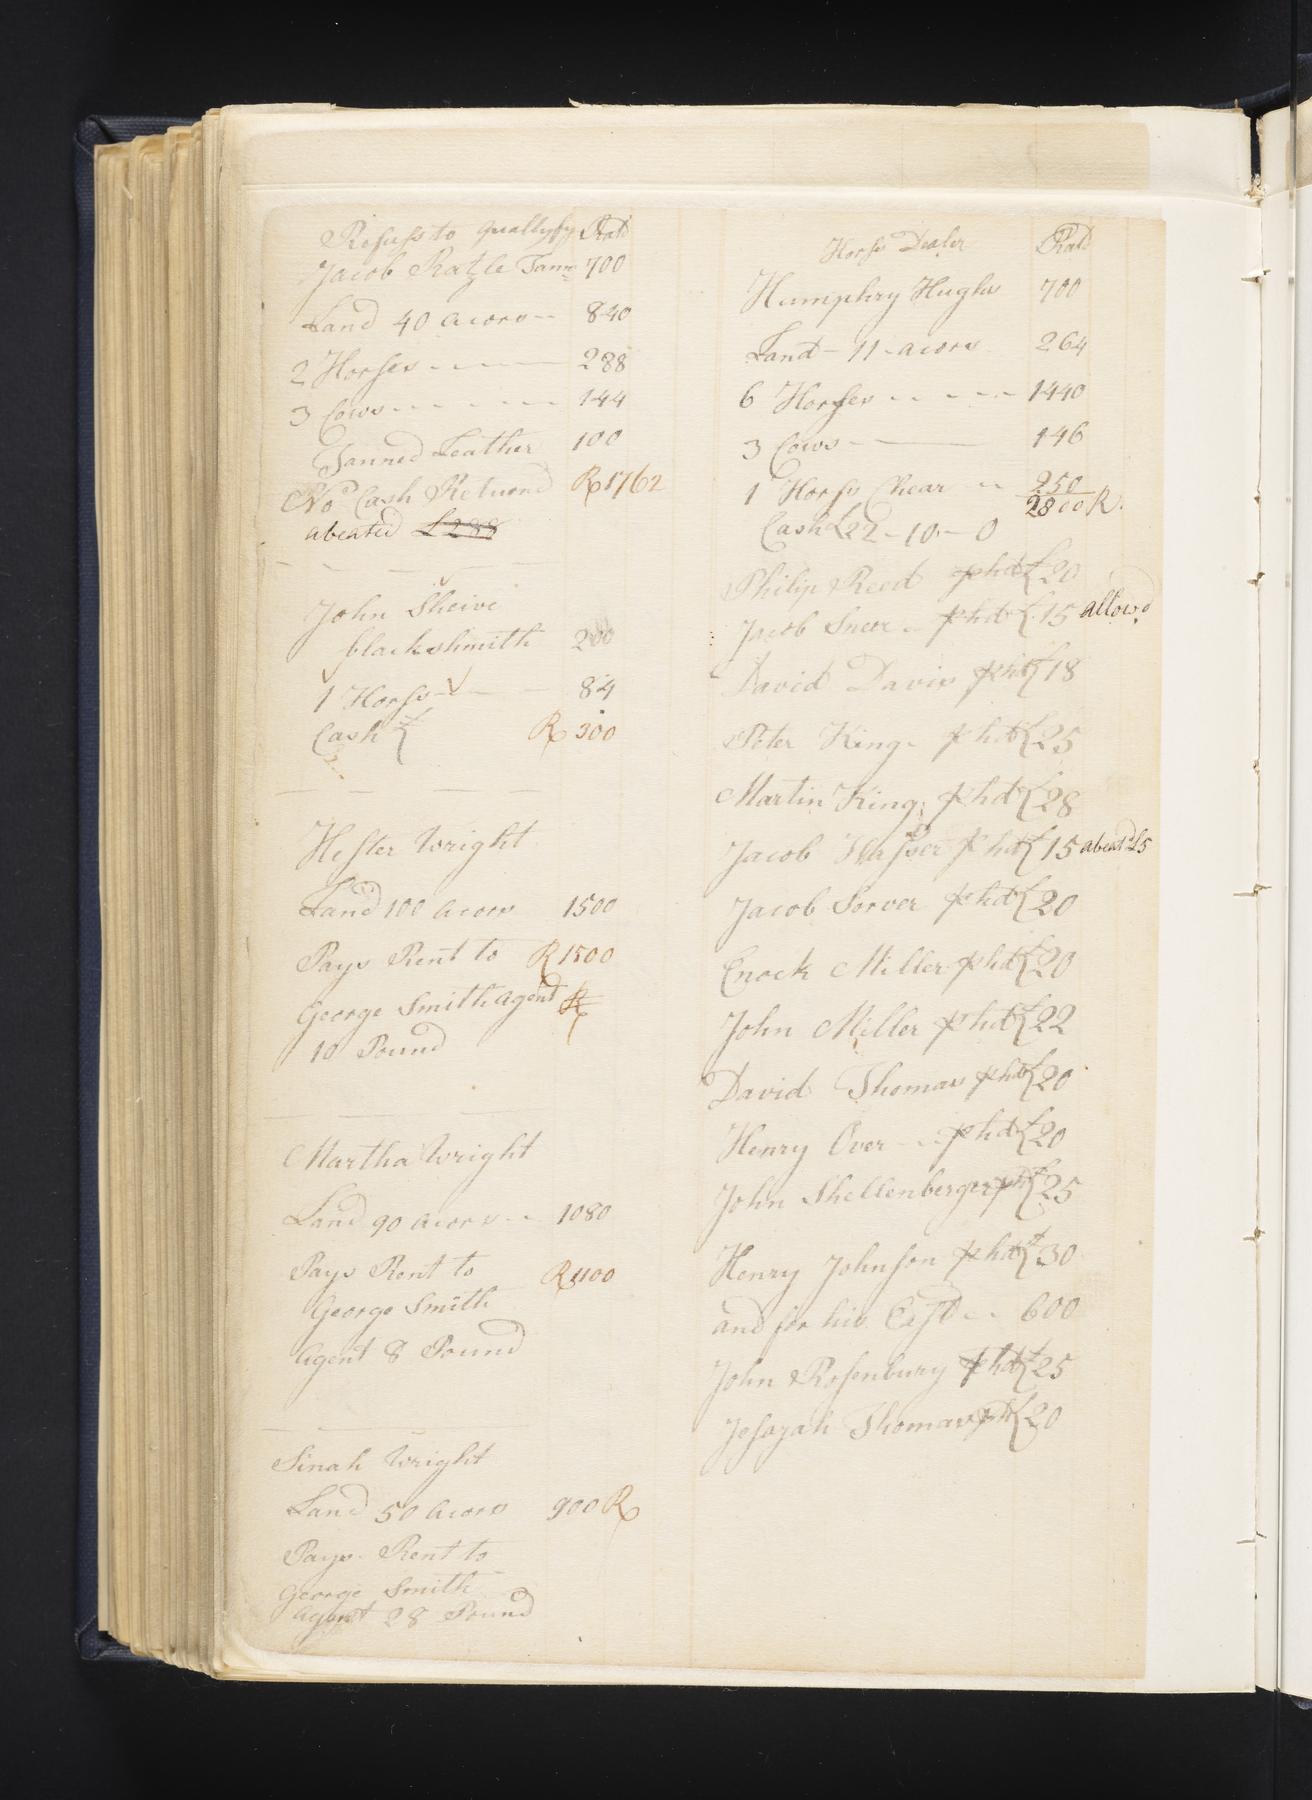 Refuss to quallyfy Rats
Jacob Ratle Tann 700
Land 40 acors 840
2 Horses 288
3 Cows 144
Tanned Leather 100
No Cash Returnd R 1762
abeated £288
John Sheive
blackshmith 200
1 Horss 84
Cash £ R 300
Hester Wright
Land 100 acors 1500
Pays Rent to R 1500
George Smith agent R
10 Pound
Martha Wright
Land 90 acors 1080
Pays Rent to R 1100
George Smith
Agent 8 Pound
Sinah Wright
Land 50 acors 900 R
Pays Rent to
George Smith
agent 28 Pound
Horss Dealer Rats
Humphry Hughs 700
Land 11 acors 264
6 Horses 1440
3 Cows 146
1 Horss Chear 250
2800 R
Cash £22-10-0
Philip Reed phd £20
Jacob Sneer phd £15 allowd
David Davis phd £18
Peter King phd £25
Martin King phd £28
Jacob Hasser phd £15 abeatd £5
Jacob Sorver phd £20
Enock Miller phd £20
John Miller phd £22
David Thomas phd £20
Henry Over phd £20
John Shellenberger phd £25
Henry Johnson phd £30
and for his Est 600
John Rosenbury phd £25
Jesayah Thomas phd £20